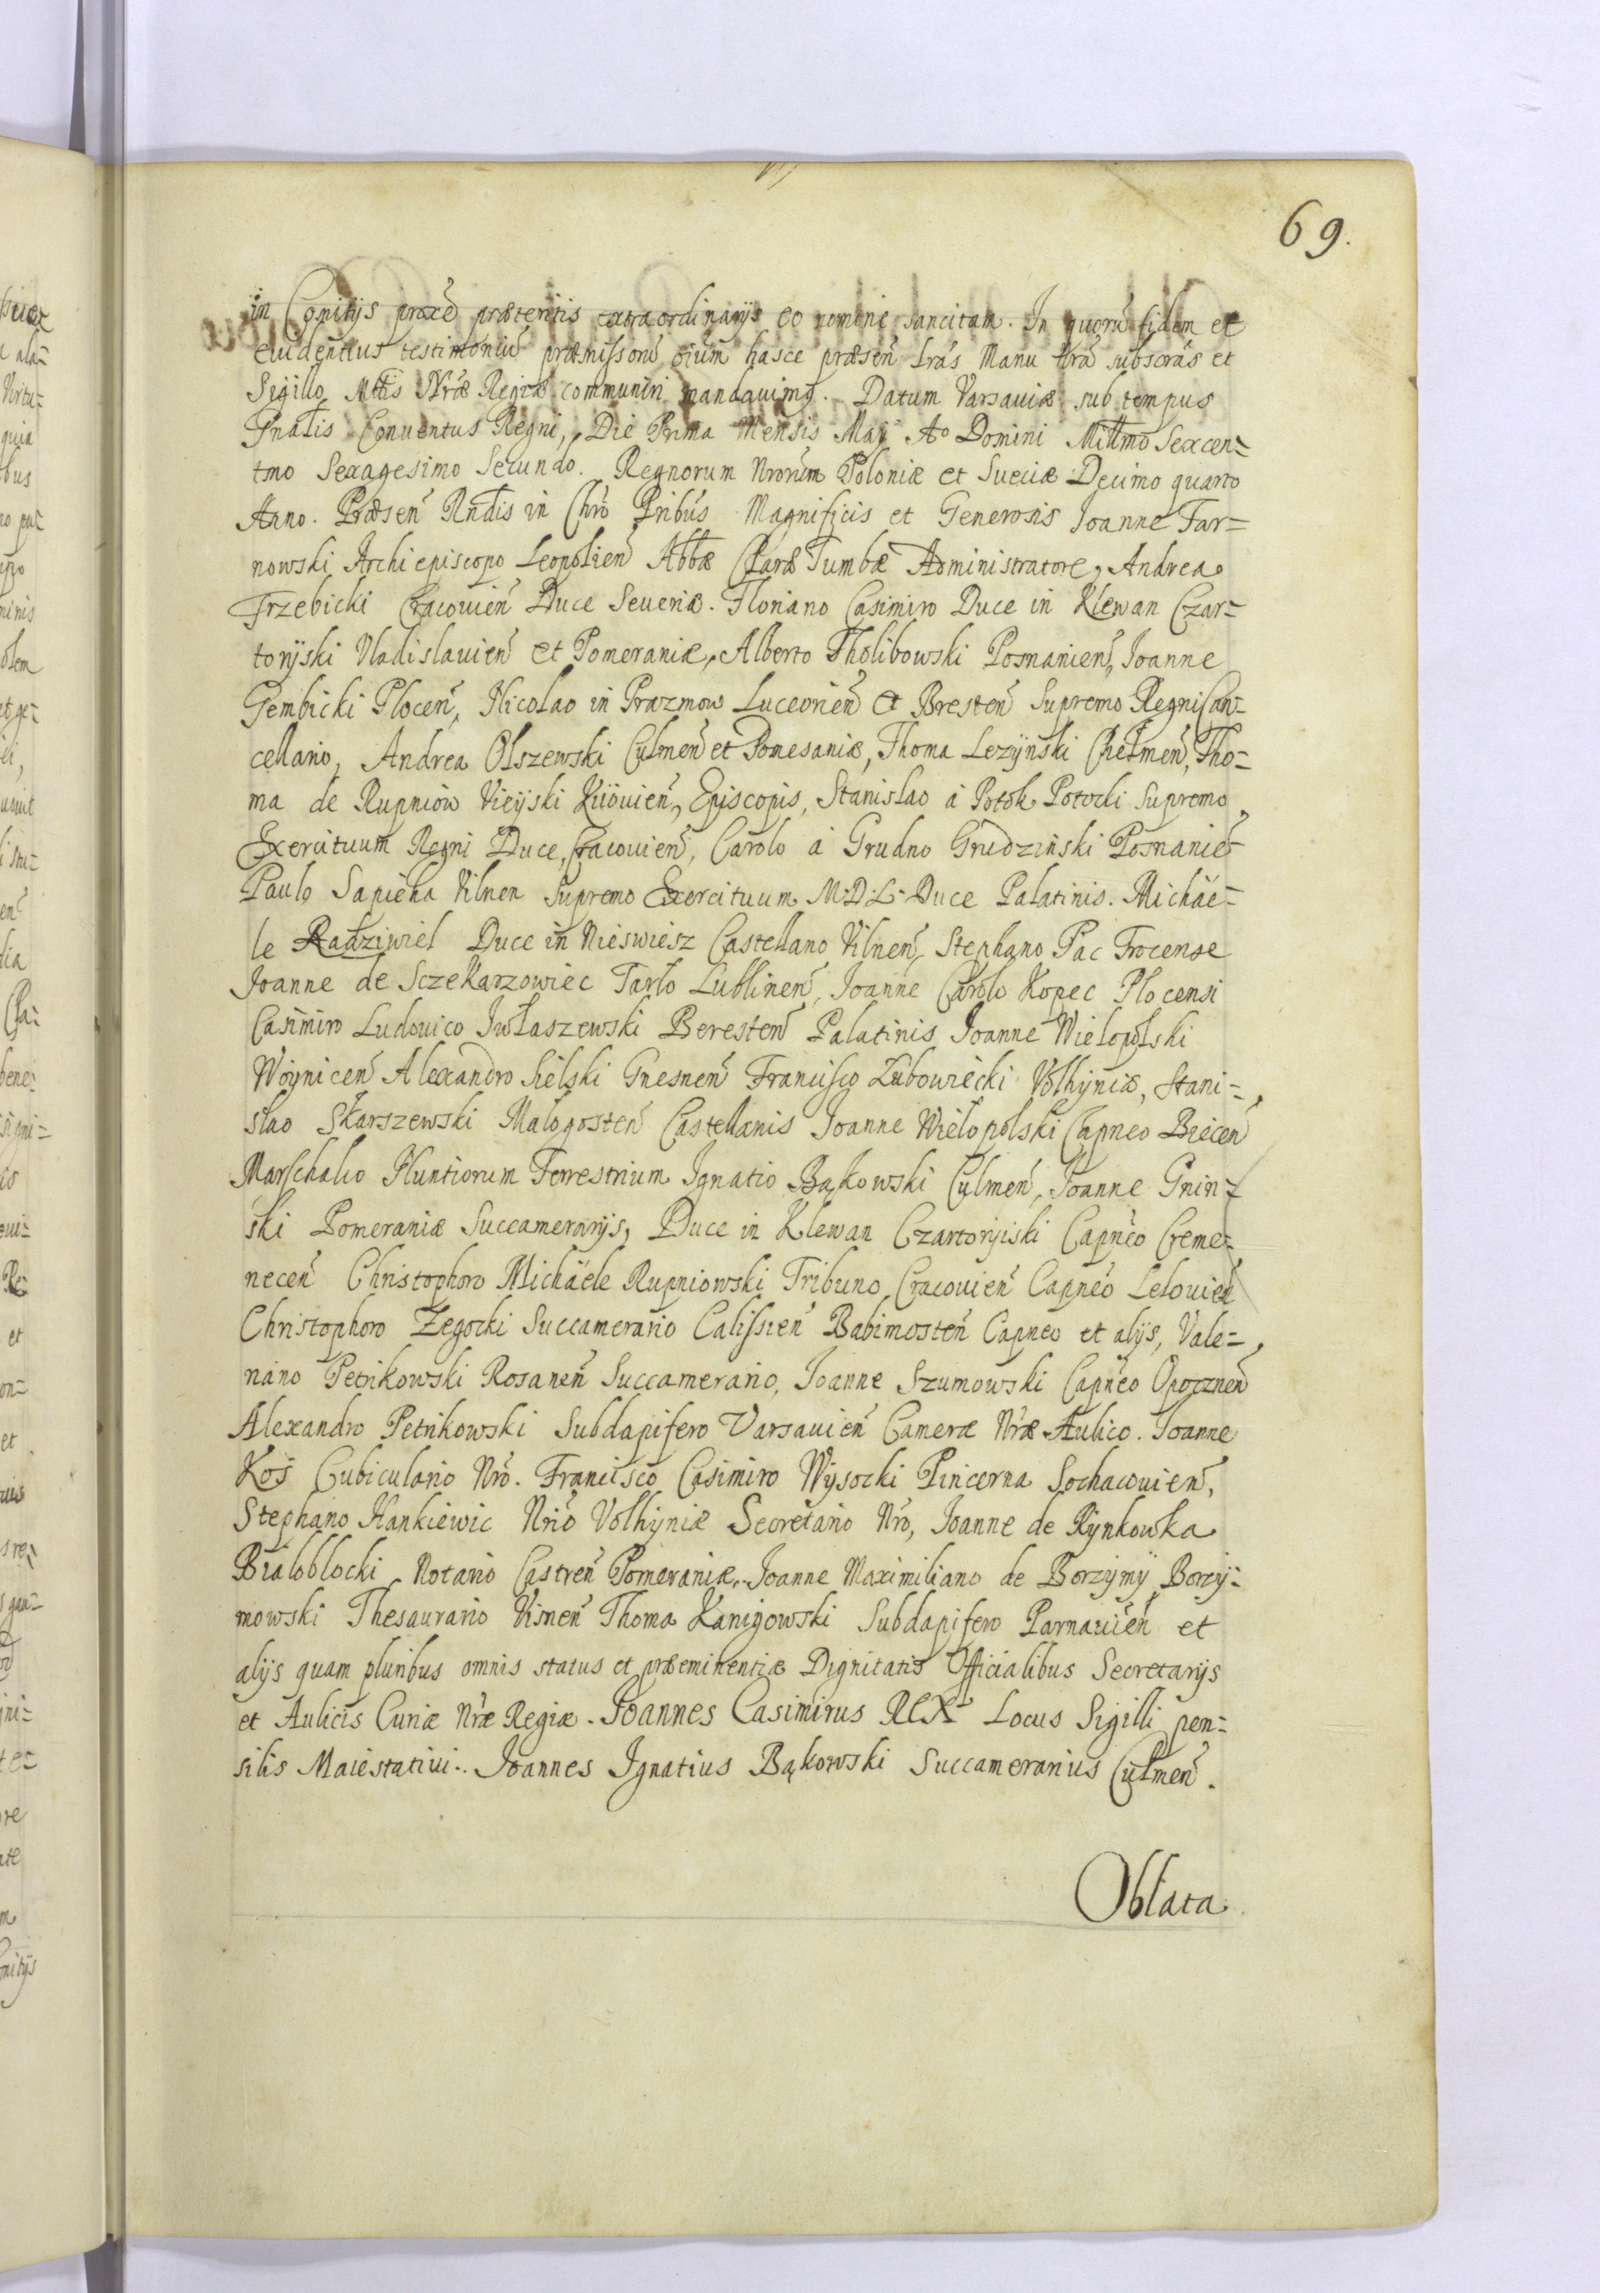 69.
in Comitijs proxe præteritis extraordinarijs eo nomine sancitam. In quorũ fidem et
euidentius testimoniũ præmissorũ oĩum hasce præseñ lrás Manu nrã subscrás et
Sigillo Mttis Nræ Regiæ communiri mandauimg. Datum Varsauiæ sub tempus
Gnalis Conuentus Regni, Die Prima Mensis Maÿ Aº Domini Millmo Sexcen=
tmo Sexagesimo Secundo. Regnorum Nrorum Poloniæ et Sueciæ Decimo quarto
Anno. Præseñ Rndis in Chrõ Pribús Magnificis et Generosis Joanne Tar=
nowski Archiepiscopo Leopolieñ Abbæ Claræ Tumbæ Administratore, Andrea
Trzebicki Cracouieñ Duce Seueriæ. Floriano Casimiro Duce in Klewan Czar=
torÿski Vladislauieñ et Pomeraniæ, Alberto Tholibowski Posnanieñ, Joanne
Gembicki Ploceñ, Nicolao in Prazmow Luceorieñ et Bresteñ Supremo Regni Can=
cellario, Andrea Olszewski Culmeñ et Pomesaniæ, Thoma Lezÿnski Chełmeñ, Tho=
ma de Rupniow Vieÿski Kiiouieñ, Episcopis, Stanislao á Potok Potocki Supremo
Exercituum Regni Duce, Cracouieñ, Carolo á Grudno Grudziński Posnanieñ
Paulo Sapieha Vilnen Supremo Exercituum M.D.L. Duce Palatinis. Michäe=
le Radziwiel Duce in Nieswiesz Castellano Vilneñ, Stephano Pac Trocense
Joanne de Sczekarzowiec Tarło Lublineñ, Joanne Carolo Kopec Plocensi
Casimiro Ludouico Jwłaszewski Beresteñ Palatinis Joanne Wielopolski
Woÿniceñ Alexandro Sielski Gnesneñ Francisco Lubowiecki Volhÿniæ, Stani=
slao Skarszewski Malogosteñ Castellanis Joanne Wielopolski Capneo Bieceñ
Marschalco Nuntiorum Terrestrium Ignatio Bąkowski Culmeñ, Joanne Gnin=
ski Pomeraniæ Succamerarijs, Duce in Klewan Czartorÿiski Capneo Creme=
neceñ Christophoro Michäele Rupniowski Tribuno Cracouieñ Capneo Lelouieñ
Christophoro Zegocki Succamerario Calissieñ Babimosteñ Capneo et alÿs, Vale=
riano Petrikowski Rosaneñ Succamerario, Joanne Szumowski Capneo Opoczneñ
Alexandro Petrikowski Subdapifero Varsauieñ Cameræ Nræ Aulico. Joanne
Kos Cubiculario Nrõ. Francisco Casimiro Wÿsocki Pincerna Sochacouieñ,
Stephano Hankiewic Nrio Volhÿniæ Secretario Nrõ, Joanne de Rÿnkowka
Bialoblocki Notario Castreñ Pomeraniæ, Joanne Maximiliano de Borzÿmÿ Borzÿ=
mowski Thesaurario Visneñ Thoma Kanigowski Subdapifero Parnauieñ et
alÿs quam pluribus omnis status et præeminentiæ Dignitatis Officialibus Secretarÿs
et Aulicis Curiæ Nræ Regiæ. Joannes Casimirus REX Locus Sigilli pen=
silis Maiestatiui. Joannes Ignatius Bąkowski Succamerarius Culmeñ.
Oblata